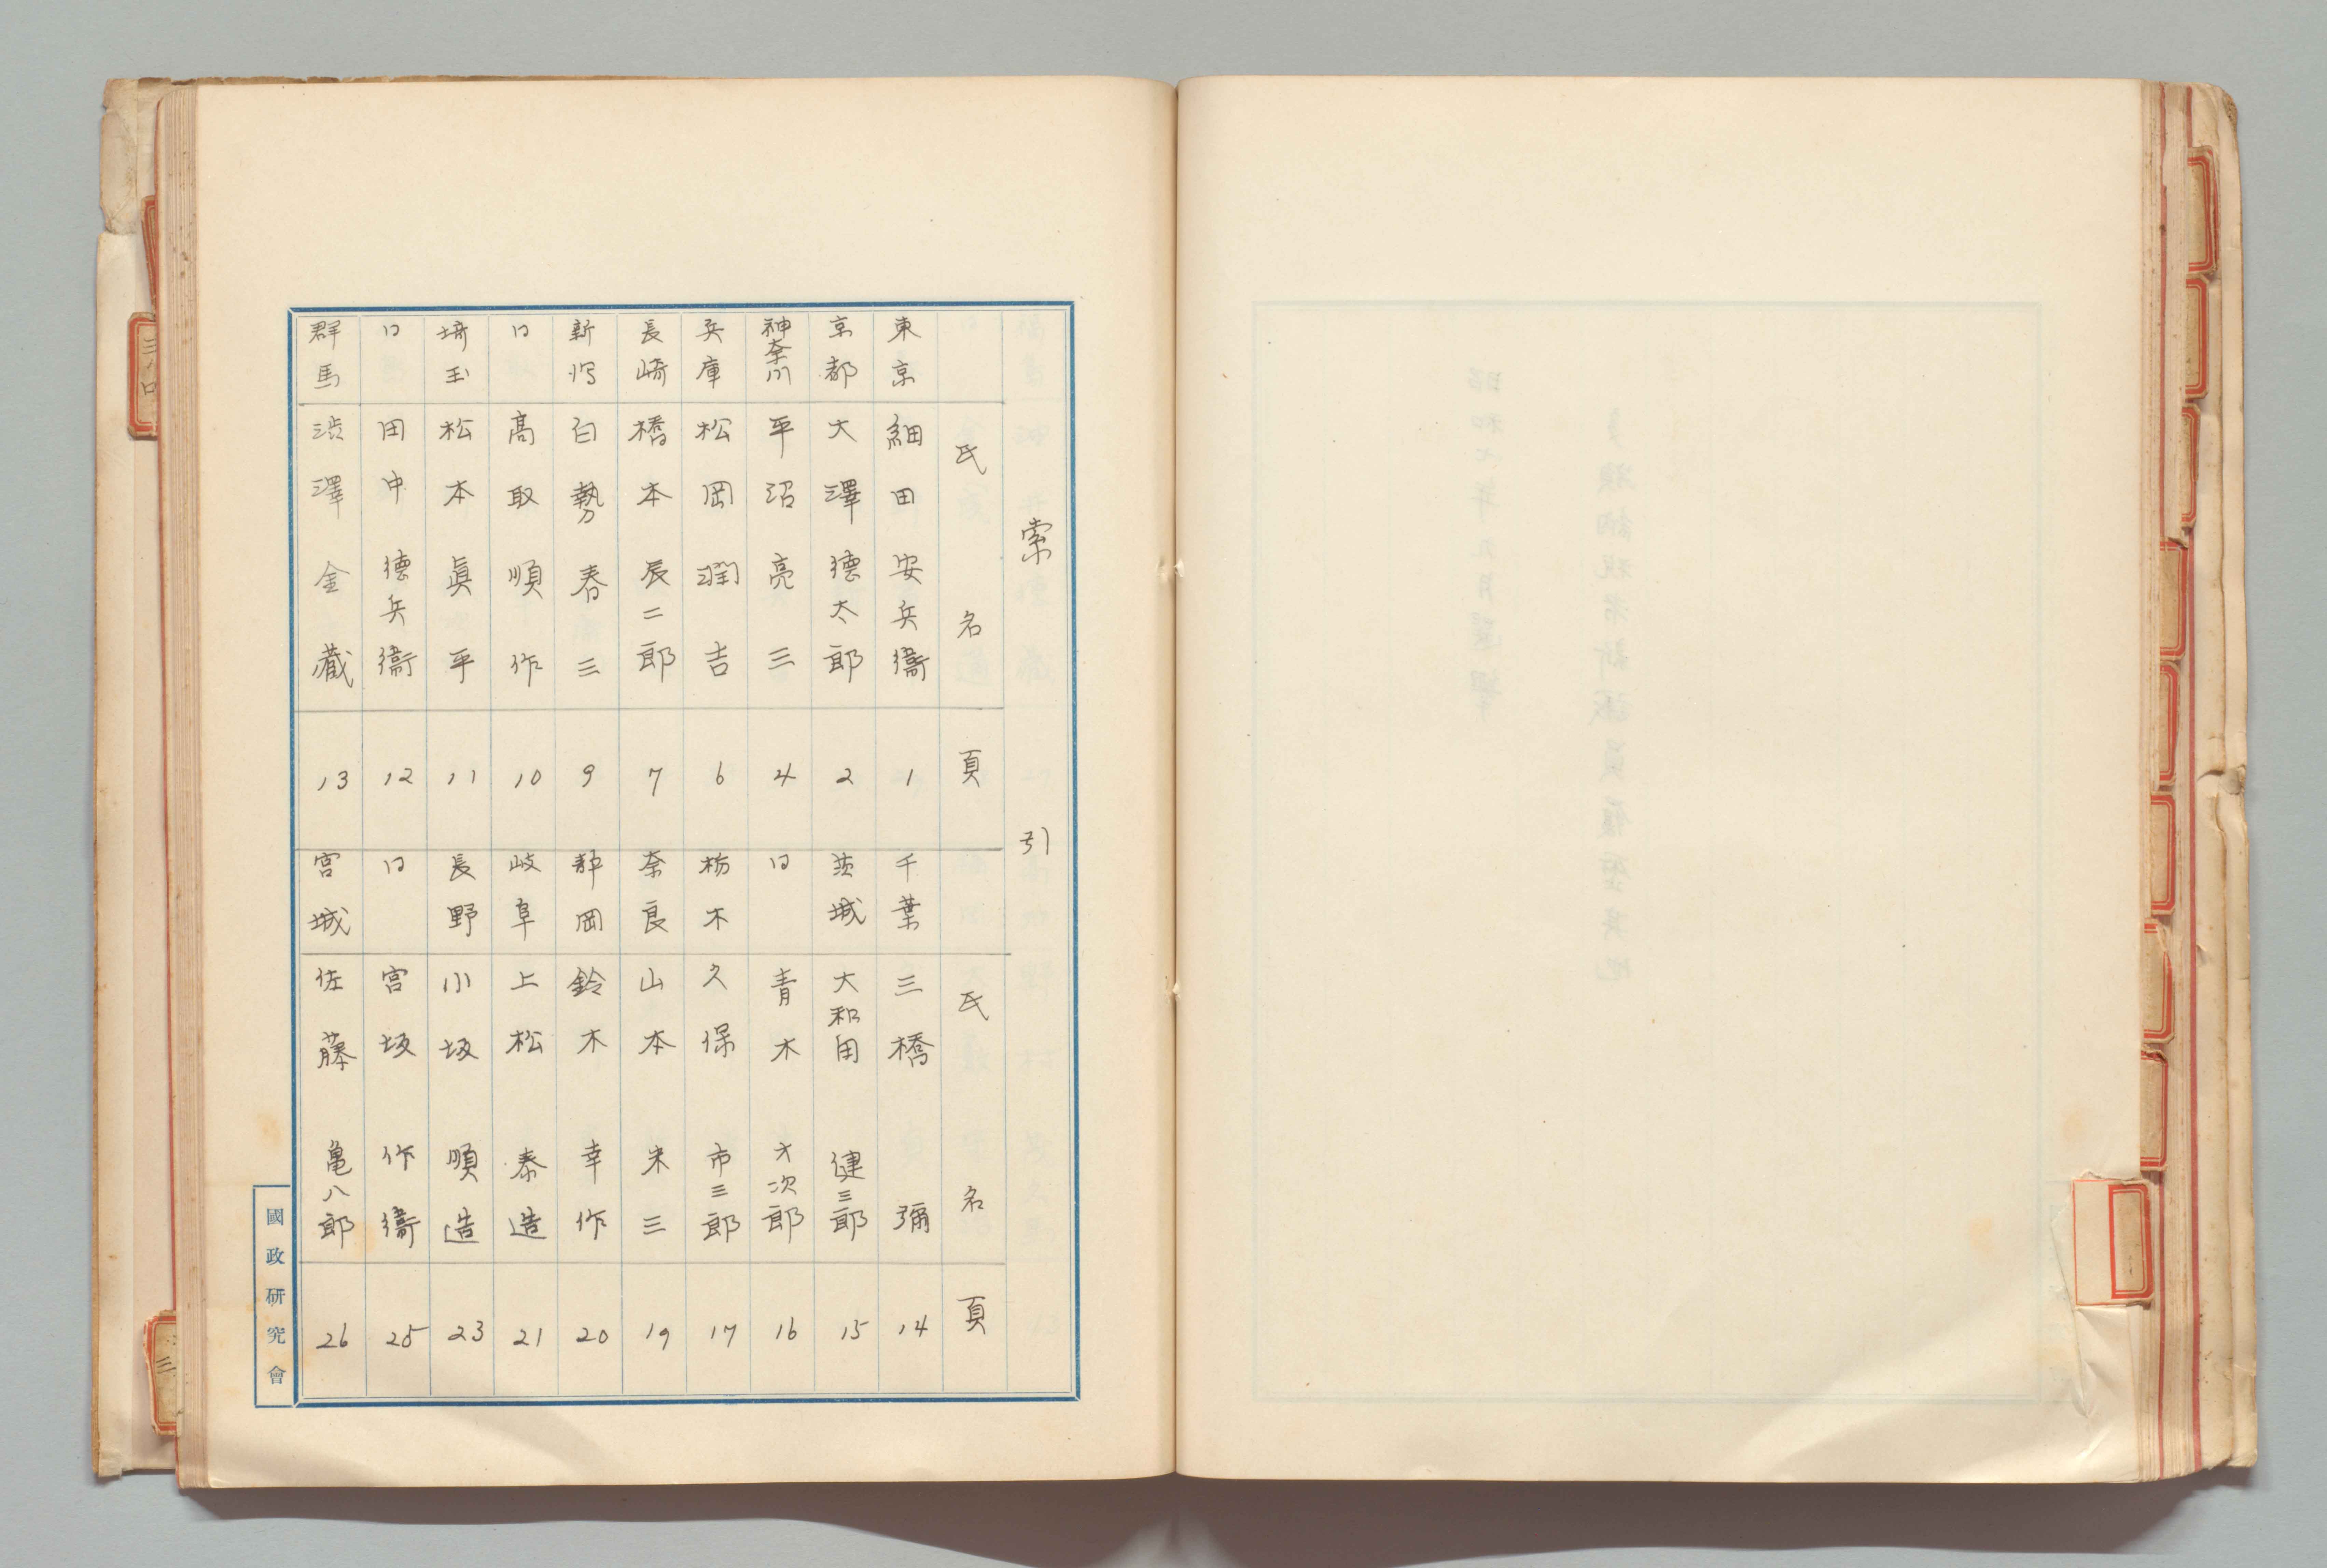 索引
氏名 頁 氏名 頁
東京 細田安兵衞 1 千葉 三橋彌 14
京都 大澤德太郎 2 茨城 大和田健三郎 15
神奈川 平沼亮三 4 〃 青木才次郎 16
兵庫 松岡潤吉 6 栃木 久保市三郎 17
長崎 橋本辰二郎 7 奈良 山本米三 19
新潟 白勢春三 9 静岡 鈴木幸作 20
〃 髙取順作 10 岐阜 上松泰造 21
埼玉 松本眞平 11 長野 小坂順造 23
〃 田中德兵衞 12 〃 宮坂作衞 25
群馬 渋澤金蔵 13 宮城 佐藤亀八郎 26
國政研究會